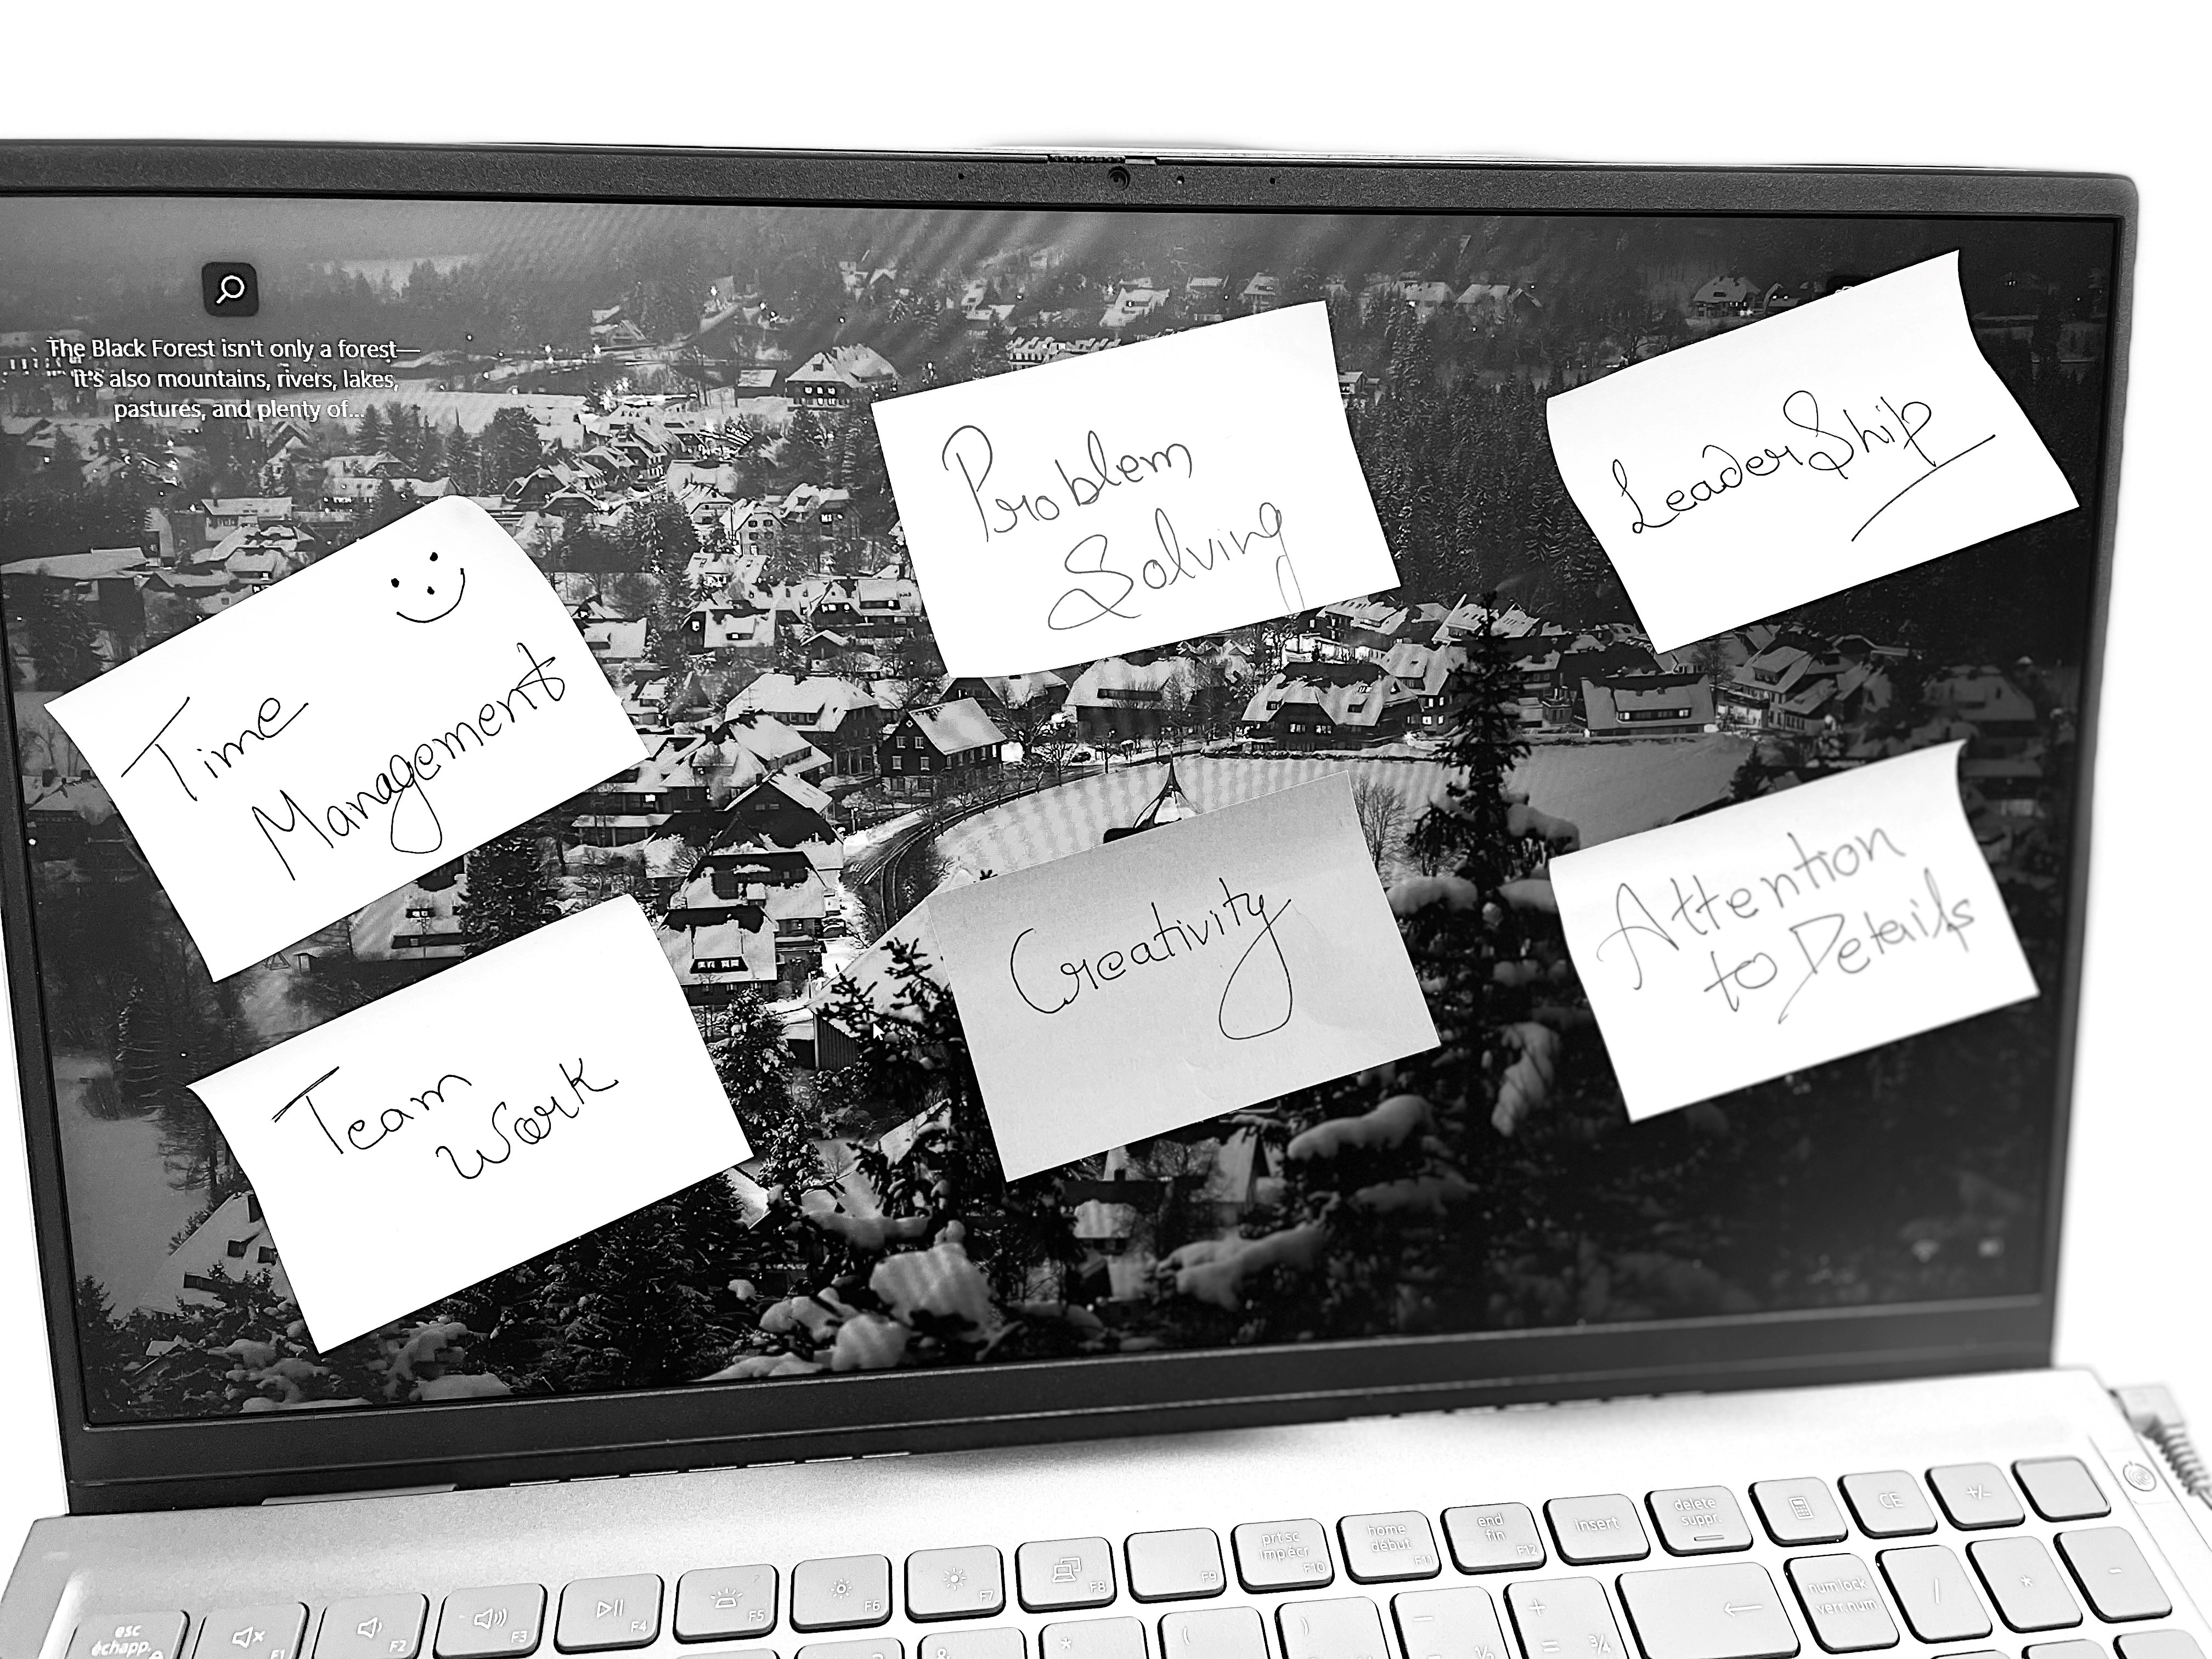 The Black Forest isn't only a forest—
it's also mountains, rivers, lakes,
pastures, and plenty of...
Time
Management
Problem
Solving
LeaderShip
Team
Work
Creativity
Attention
to Details
esc
échapp.
F1
F2
F3
F4
F5
F6
F7
F8
F9
prt sc
imp écr
F10
home
début
F11
end
fin
F12
insert
delete
suppr.
CE
+/-
&
*
(
)
—
½
+
=
¾
←
num lock
verr num
/
*
-